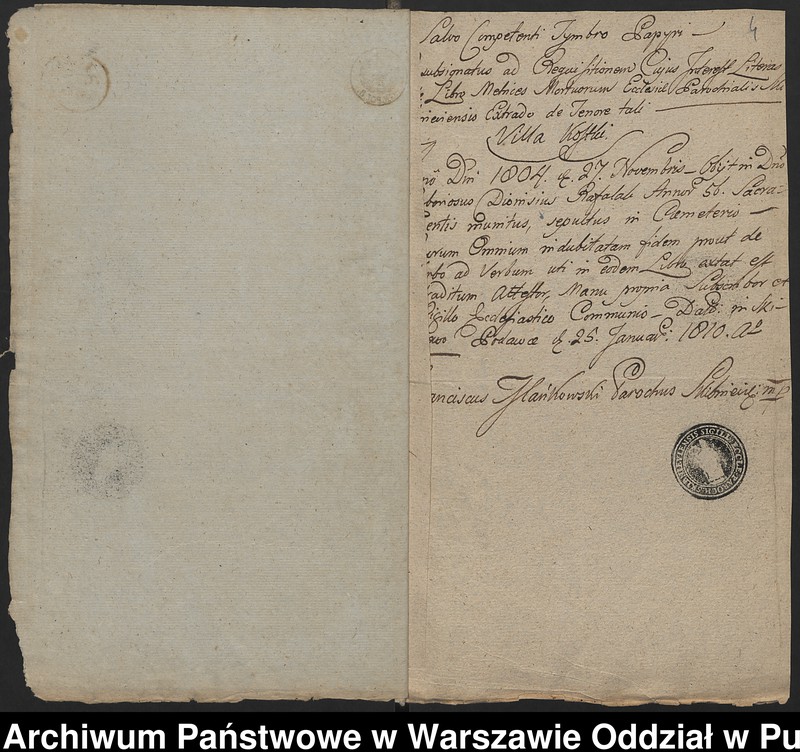 4
Salvo Competenti Tymbro Papyri
subsignatus ad Requisitionem Cujus Interest Literas
Libro Metrices Mortuorum Ecclesiæ Parochialis
Extrado de Tenore tali
Villa
Dni 1804. d. 27. Novembris Obijt in Dno
Dionisius Rafalak Annor 56. Sacra-
entis munitus, sepultus in Cæmeterio
orum Omnium indubitatam fidem prout de
rbo ad Verbum uti in eodem Libro extat est
raditum Attestor, Manu propria Subscribor et
igillo Ecclesiastico Communio Dat. in
d. 25. Januar. 1810. Ao
anciscus Parochus
Archiwum Państwowe w Warszawie Oddział w Pu